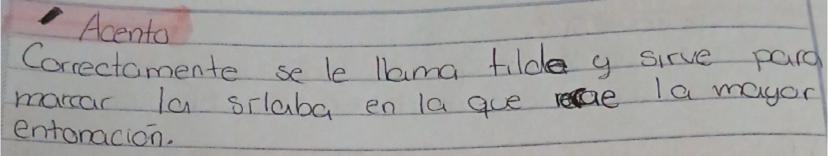 Acento
Correctamente se le llama tilde y sirve para
marcar la sílaba en la que recae la mayor
entonación.